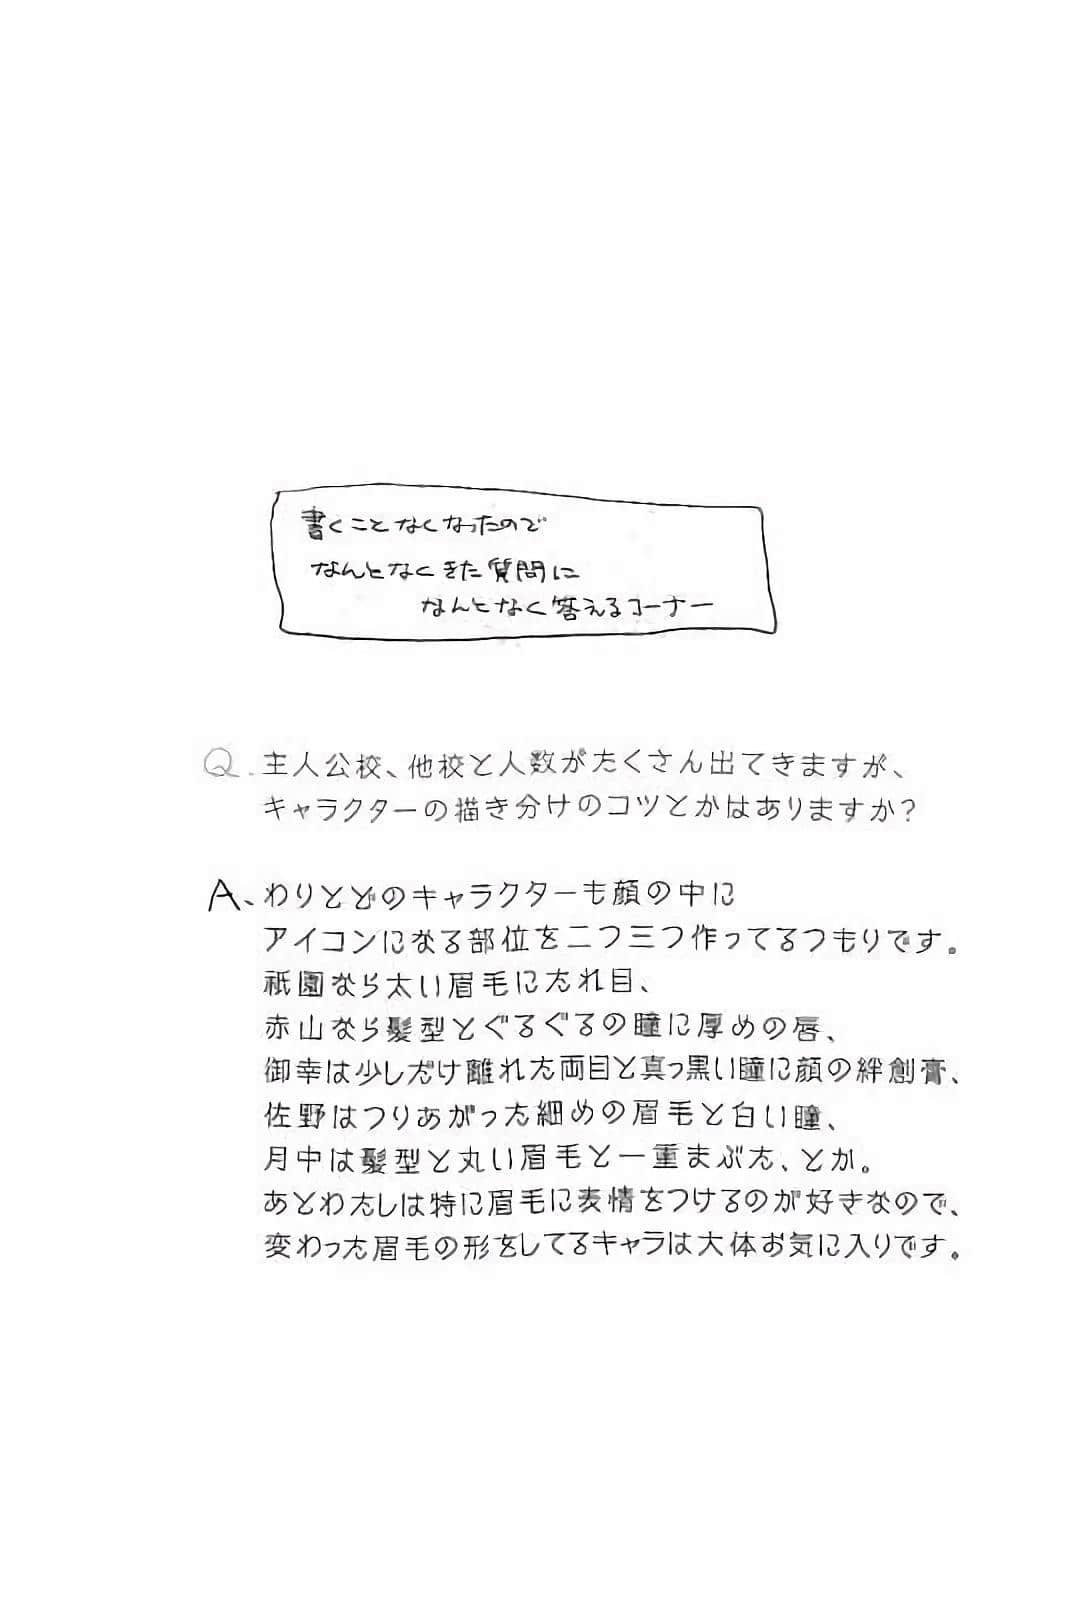 書くことなくなったので
なんとなくきた質問に
なんとなく答えるコーナー
Q. 主人公校、他校と人数がたくさん出てきますが、
キャラクターの描き分けのコツとかはありますか?
A、わりとどのキャラクターも顔の中に
アイコンになる部位を二つ三つ作ってるつもりです。
祇園なら太い眉毛にたれ目、
赤山なら髪型とぐるぐるの瞳に厚めの唇、
御幸は少しだけ離れた両目と真っ黒い瞳に顔の絆創膏、
佐野はつりあがった細めの眉毛と白い瞳、
月中は髪型と丸い眉毛と一重まぶた、とか。
あとわたしは特に眉毛に表情をつけるのが好きなので、
変わった眉毛の形をしてるキャラは大体お気に入りです。